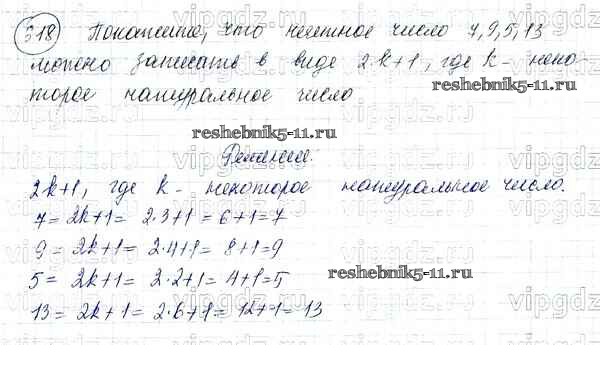 318 Покажите, что нечетное число 7,9,5,13
можно записать в виде 2k+1, где k - неко-
торое натуральное число
reshebnik5-11.ru
Решение.
2k+1, где k - некоторое натуральное число.
7 = 2k+1 = 2·3+1 = 6+1=7
9 = 2k+1 = 2·4+1 = 8+1=9
5 = 2k+1 = 2·2+1 = 4+1=5
reshebnik5-11.ru
13 = 2k+1 = 2·6+1 = 12+1 = 13